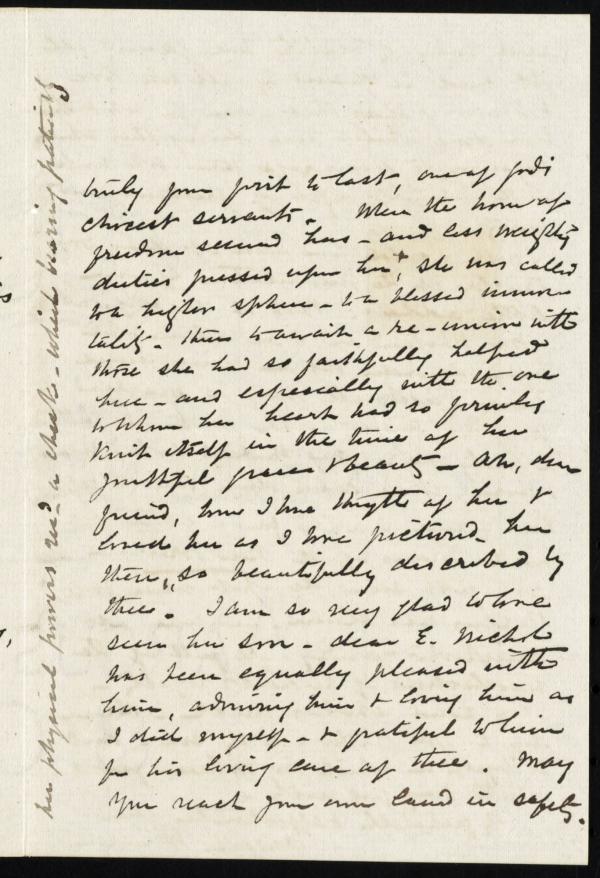 truly from first to last, one of God's
choicest servants. When the hour of
freedom seemed hers – and less weighty
duties pressed upon her, she was called
to a higher sphere – to a blessed immor
tality – there to await a re-union with
those she had so faithfully helped
here – and especially with the one
to whom her heart had so firmly
knit itself in the time of her
youthful grace & beauty – Ah, dear
friend, how I have thought of her &
loved her as I have pictured her
then, so beautifully described by
thee. I am so very glad to have
seen her son – dear E. Nichol
has been equally pleased with
him, admiring him & loving him as
I did myself – & grateful to him
for his loving care of thee. May
you reach your own land in safety.
her physical powers rec'd a check – which having partially